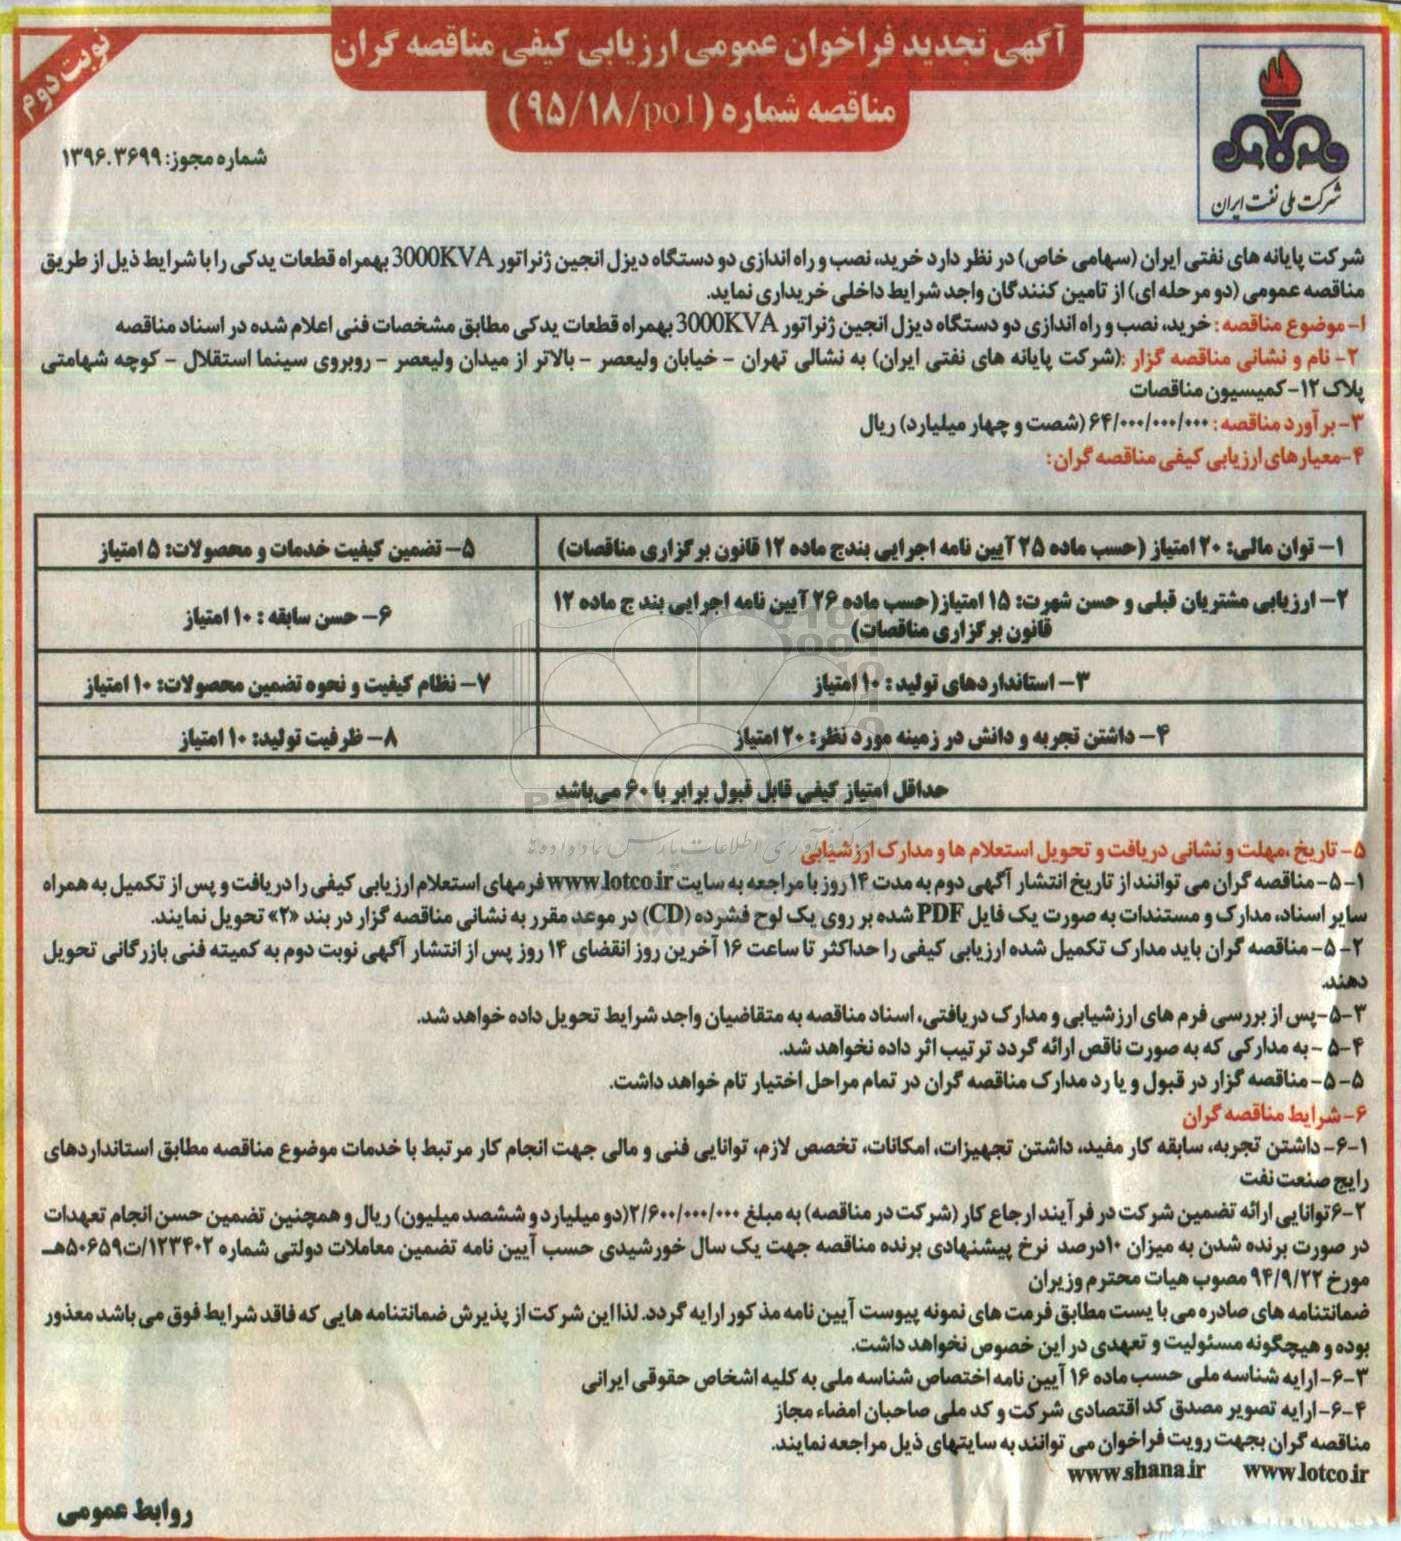 آگهی تجدید فراخوان عمومی ارزیابی کیفی مناقصه گران
مناقصه شماره (۹۵/۱۸/po1)
نوبت دوم
شماره مجوز: ۱۳۹۶.۳۶۹۹
شرکت ملی نفت ایران
شرکت پایانه های نفتی ایران (سهامی خاص) در نظر دارد خرید، نصب و راه اندازی دو دستگاه دیزل انجین ژنراتور 3000KVA بهمراه قطعات یدکی را با شرایط ذیل از طریق
مناقصه عمومی (دو مرحله ای) از تامین کنندگان واجد شرایط داخلی خریداری نماید.
۱- موضوع مناقصه : خرید، نصب و راه اندازی دو دستگاه دیزل انجین ژنراتور 3000KVA بهمراه قطعات یدکی مطابق مشخصات فنی اعلام شده در اسناد مناقصه
۲- نام و نشانی مناقصه گزار :(شرکت پایانه های نفتی ایران) به نشالی تهران - خیابان ولیعصر - بالاتر از میدان ولیعصر - روبروی سینما استقلال - کوچه شهامتی
پلاک ۱۲- کمیسیون مناقصات
۳- برآورد مناقصه : ۶۴/۰۰۰/۰۰۰/۰۰۰ (شصت و چهار میلیارد) ریال
۴-معیارهای ارزیابی کیفی مناقصه گران:
۱- توان مالی: ۲۰ امتیاز (حسب ماده ۲۵ آیین نامه اجرایی بندج ماده ۱۲ قانون برگزاری مناقصات)
۵- تضمین کیفیت خدمات و محصولات: ۵ امتیاز
۲- ارزیابی مشتریان قبلی و حسن شهرت: ۱۵ امتیاز(حسب ماده ۲۶ آیین نامه اجرایی بند ج ماده ۱۲
قانون برگزاری مناقصات)
۶- حسن سابقه : ۱۰ امتیاز
۳- استانداردهای تولید : ۱۰ امتیاز
۷- نظام کیفیت و نحوه تضمین محصولات: ۱۰ امتیاز
۴- داشتن تجربه و دانش در زمینه مورد نظر: ۲۰ امتیاز
۸- ظرفیت تولید: ۱۰ امتیاز
حداقل امتیاز کیفی قابل قبول برابر با ۶۰ می‌باشد
۵- تاریخ ،مهلت و نشانی دریافت و تحویل استعلام ها و مدارک ارزشیابی
۵-۱- مناقصه گران می توانند از تاریخ انتشار آگهی دوم به مدت ۱۴ روز با مراجعه به سایت www.lotco.ir فرمهای استعلام ارزیابی کیفی را دریافت و پس از تکمیل به همراه
سایر اسناد، مدارک و مستندات به صورت یک فایل PDF شده بر روی یک لوح فشرده (CD) در موعد مقرر به نشانی مناقصه گزار در بند «۲» تحویل نمایند.
۵-۲- مناقصه گران باید مدارک تکمیل شده ارزیابی کیفی را حداکثر تا ساعت ۱۶ آخرین روز انقضای ۱۴ روز پس از انتشار آگهی نوبت دوم به کمیته فنی بازرگانی تحویل
دهند.
۵-۳-پس از بررسی فرم های ارزشیابی و مدارک دریافتی، اسناد مناقصه به متقاضیان واجد شرایط تحویل داده خواهد شد.
۵-۴ - به مدارکی که به صورت ناقص ارائه گردد ترتیب اثر داده نخواهد شد.
۵-۵- مناقصه گزار در قبول و یا رد مدارک مناقصه گران در تمام مراحل اختیار تام خواهد داشت.
۶- شرایط مناقصه گران
۶-۱- داشتن تجربه، سابقه کار مفید، داشتن تجهیزات، امکانات، تخصص لازم، توانایی فنی و مالی جهت انجام کار مرتبط با خدمات موضوع مناقصه مطابق استانداردهای
رایج صنعت نفت
۶-۲توانایی ارائه تضمین شرکت در فرآیند ارجاع کار (شرکت در مناقصه) به مبلغ ۲/۶۰۰/۰۰۰/۰۰۰(دو میلیارد و ششصد میلیون) ریال و همچنین تضمین حسن انجام تعهدات
در صورت برنده شدن به میزان ۱۰درصد نرخ پیشنهادی برنده مناقصه جهت یک سال خورشیدی حسب آیین نامه تضمین معاملات دولتی شماره ۱۲۳۴۰۲/ت۵۰۶۵۹هـ
مورخ ۹۴/۹/۲۲ مصوب هیات محترم وزیران
ضمانتنامه های صادره می بایست مطابق فرمت های نمونه پیوست آیین نامه مذکور ارایه گردد. لذا این شرکت از پذیرش ضمانتنامه هایی که فاقد شرایط فوق می باشد معذور
بوده و هیچگونه مسئولیت و تعهدی در این خصوص نخواهد داشت.
۶-۳- ارایه شناسه ملی حسب ماده ۱۶ آیین نامه اختصاص شناسه ملی به کلیه اشخاص حقوقی ایرانی
۶-۴- ارایه تصویر مصدق کد اقتصادی شرکت و کد ملی صاحبان امضاء مجاز
مناقصه گران بجهت رویت فراخوان می توانند به سایتهای ذیل مراجعه نمایند.
www.shana.ir www.lotco.ir
روابط عمومی